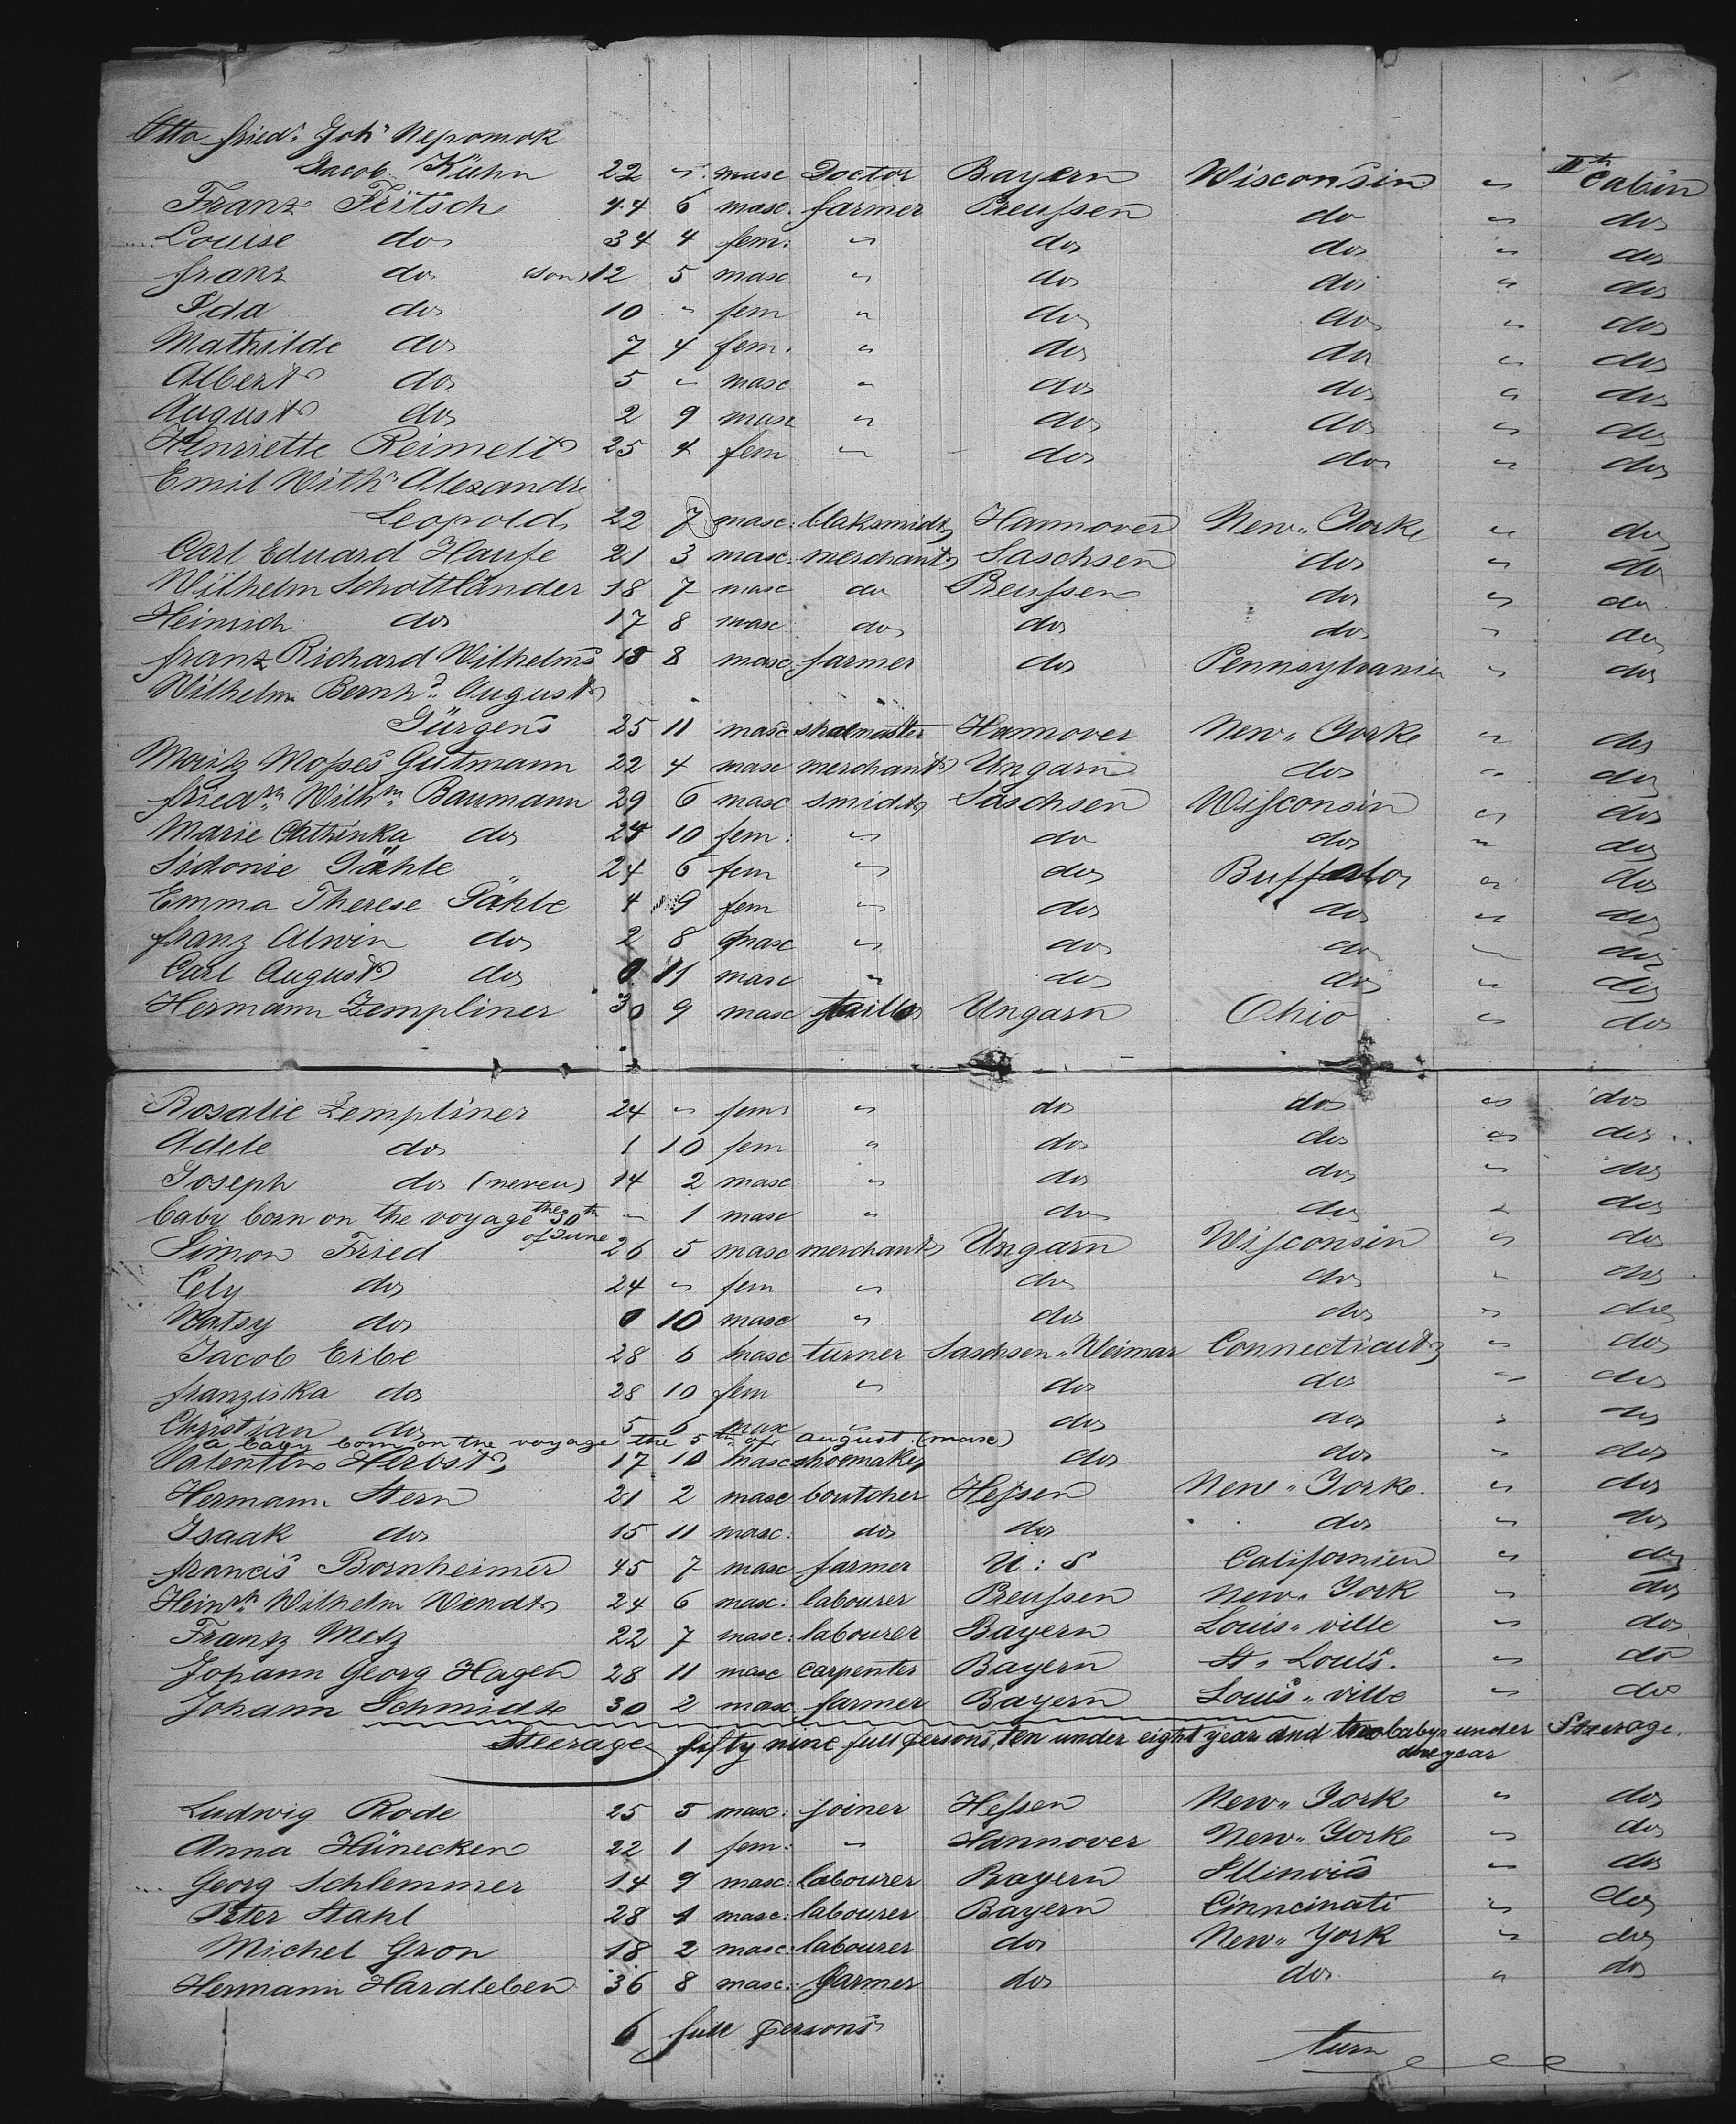 Otto Fried. Joh. Nepomok
Jacob Kühn 22 " masc Doctor Bayern Wisconsin " IIth Cabin
Franz Fritsch 44 6 masc. farmer Preussen do " do
Louise do 34 4 fem. " do do " do
franz do (son) 12 5 masc " do do " do
Ida do 10 " fem " do do " do
Mathilde do 7 4 fem. " do do " do
Albert do 5 " masc " do do " do
August do 2 9 masc " do do " do
Henriette Reimelt 25 4 fem " do do " do
Emil Wilh. Alexandr
Leopold 22 7 masc: blaksmidt Hannover New" York " do
Carl Eduard Haufe 21 3 masc. merchant Saschsen do " do
Wilhelm Schottländer 18 7 masc do Preussen do " do
Heinrich do 17 8 masc do do do " do
franz Richard Wilhelms 18 8 masc farmer do Pennsylvania " do
Wilhelm Bernhd. August
Jürgens 25 11 masc shoemaster Hannover New" York " do
Moritz Mosses Gutmann 22 4 masc merchant Ungarn do " do
friedrh Wilhm Baumann 29 6 masc smidt Saschsen Wisconsin " do
Marie Cathinka do 24 10 fem: " do do " do
Sidonie Pähle 24 6 fem " do Buffalo " do
Emma Therese Pähle 4 9 fem " do do " do
franz Alwin do 2 8 masc " do do " do
Carl August do 0 11 masc " do do " do
Hermann Zempliner 30 9 masc taillor Ungarn Ohio " do
Rosalie Zempliner 24 " fem " do do " do
Adele do 1 10 fem " do do " do
Joseph do (neveu) 14 2 masc " do do " do
baby born on the voyage the 30th of June " 1 masc " do do " do
Simon Fried 26 5 masc merchant Ungarn Wisconsin " do
Cely do 24 " fem " do do " do
Watsy do 0 10 masc " do do " do
Jacob Erbe 28 6 masc turner Saschsen" Weimar Connecticut " do
franziska do 28 10 fem " do do " do
Christian do 5 6 masc " do do " do
a baby born on the voyage the 5th of august (masc)
Valentin Herbst 17 10 masc shoemaker do do " do
Hermann Stern 21 2 masc boutcher Hessen New" York " do
Isaak do 15 11 masc: do do do " do
francis Bornheimer 45 7 masc farmer U: S Californien " do
Heinrh Wilhelm Wendt 24 6 masc: labourer Preussen New" York " do
Frantz Metz 22 7 masc: labourer Bayern Louis" ville " do
Johann Georg Hagen 28 11 masc carpenter Bayern St" Louis. " do
Johann Schmidt 30 2 masc. farmer Bayern Louis" ville " do
Steerage fifty nine full persons, ten under eight year and two babys under one year Steerage.
Ludwig Rode 25 5 masc: joiner Hessen New" York " do
Anna Hünecken 22 1 fem: " Hannover New" York " do
Georg Schlemmer 14 9 masc: labourer Bayern Illinois " do
Peter Stahl 28 1 masc: labourer Bayern Cinncinati " do
Michel Gron 18 2 masc: labourer do New" York " do
Hermann Hardleben 36 8 masc: farmer do do " do
6 full persons
turn